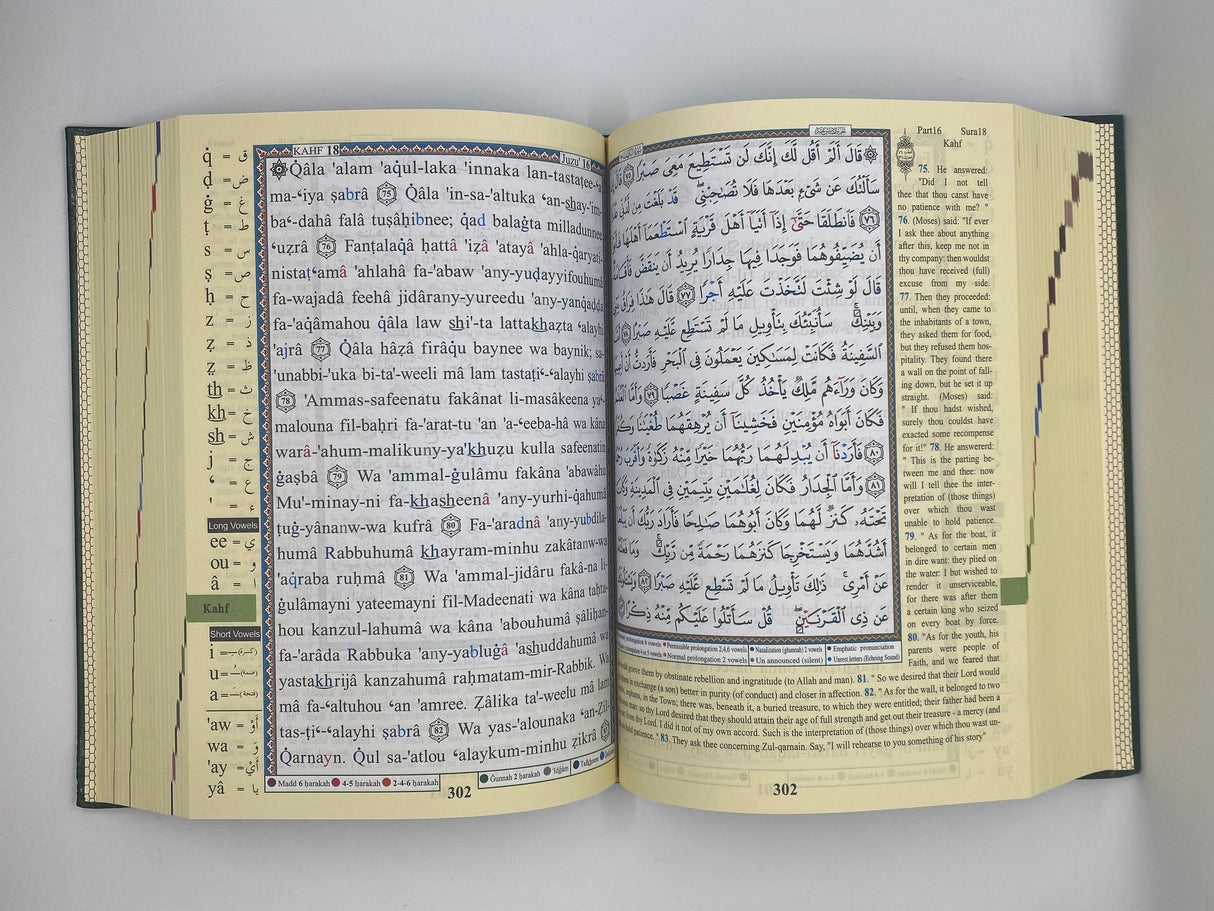 KAHF 18
Juzu' 16
Qâla 'alam 'aqul-laka 'innaka lan-tastaṭee-‘a
ma-‘iya ṣabrâ 75 Qâla 'in-sa-'altuka ‘an-shay-'im-
ba‘-dahâ falâ tuṣâḥibnee; qad balaġta milladunnee
‘uẓrâ 76 Fanṭalaqâ ḥattâ 'iẓâ 'atayâ 'ahla-qaryati-
nistaṭ‘amâ 'ahlahâ fa-'abaw 'any-yuḍayyifouhumâ
fa-wajadâ feehâ jidârany-yureedu 'any-yanqaḍḍa
fa-'aqâmahou qâla law shi'-ta lattakhaẓta ‘alayhi
'ajrâ 77 Qâla hâẓa firâqu baynee wa baynik; sa-
'unabbi-'uka bi-ta'-weeli mâ lam tastaṭi‘-‘alayhi ṣabrâ
78 'Ammas-safeenatu fakânat li-masâkeena ya‘-
malouna fil-baḥri fa-'arat-tu 'an 'a-‘eeba-hâ wa kâna
warâ-'ahum-malikuny-ya'khuẓu kulla safeenatin
ġaṣbâ 79 Wa 'ammal-ġulâmu fakâna 'abawâhu
Mu'-minay-ni fa-khasheenâ 'any-yurhi-qahumâ
ṭuġ-yânanw-wa kufrâ 80 Fa-'aradnâ 'any-yubdila-
humâ Rabbuhumâ khayram-minhu zakâtanw-wa
'aqraba ruḥmâ 81 Wa 'ammal-jidâru faka-na li-
ġulâmayni yateemayni fil-Madeenati wa kâna taḥta-
hou kanzul-lahumâ wa kâna 'abouhumâ sâliḥan-
fa-'arâda Rabbuka 'any-yabluġâ 'ashuddahumâ wa
yastakhrijâ kanzahumâ raḥmatam-mir-Rabbik. Wa
mâ fa-‘altuhou ‘an 'amree. Ẓâlika ta'-weelu mâ lam
tas-ṭi‘-‘alayhi ṣabrâ 82 Wa yas-'alounaka ‘an-Ẓil-
Qarnayn. Qul sa-'atlou ‘alaykum-minhu ẓikrâ
Madd 6 ḥarakah 4-5 ḥarakah 2-4-6 ḥarakah Ġunnah 2 ḥarakah 'Idġâm Tafkheem
302
q = ق
ḍ = ض
ġ = غ
ṭ = ط
s = س
ṣ = ص
ḥ = ح
z = ز
ẓ = ذ
ẓ = ظ
th = ث
kh = خ
sh = ش
j = ج
‘ = ع
' = ء
Long Vowels
ee = ي
ou = و
â = ا
Kahf
Short Vowels
i = (كسرة)
u = (ضمة)
a = (فتحة)
'aw = أَوْ
wa = وَ
'ay = أَيْ
yâ = يا
قَالَ أَلَمْ أَقُل لَّكَ إِنَّكَ لَن تَسْتَطِيعَ مَعِيَ صَبْرًا ٧٥ قَالَ إِن
سَأَلْتُكَ عَن شَيْءٍ بَعْدَهَا فَلَا تُصَاحِبْنِي قَدْ بَلَغْتَ مِن لَّدُنِّي
٧٦ فَانطَلَقَا حَتَّىٰ إِذَا أَتَيَا أَهْلَ قَرْيَةٍ اسْتَطْعَمَا أَهْلَهَا
أَن يُضَيِّفُوهُمَا فَوَجَدَا فِيهَا جِدَارًا يُرِيدُ أَن يَنقَضَّ فَأَقَامَهُ
قَالَ لَوْ شِئْتَ لَتَّخَذْتَ عَلَيْهِ أَجْرًا ٧٧ قَالَ هَٰذَا فِرَاقُ بَيْنِي
وَبَيْنِكَ سَأُنَبِّئُكَ بِتَأْوِيلِ مَا لَمْ تَسْتَطِع عَّلَيْهِ صَبْرًا ٧٨
السَّفِينَةُ فَكَانَتْ لِمَسَاكِينَ يَعْمَلُونَ فِي الْبَحْرِ فَأَرَدتُّ أَنْ
وَكَانَ وَرَاءَهُم مَّلِكٌ يَأْخُذُ كُلَّ سَفِينَةٍ غَصْبًا ٧٩ وَأَمَّا الْغُلَامُ
فَكَانَ أَبَوَاهُ مُؤْمِنَيْنِ فَخَشِينَا أَن يُرْهِقَهُمَا طُغْيَانًا وَكُفْرًا
٨٠ فَأَرَدْنَا أَن يُبْدِلَهُمَا رَبُّهُمَا خَيْرًا مِّنْهُ زَكَاةً وَأَقْرَبَ رُحْمًا
٨١ وَأَمَّا الْجِدَارُ فَكَانَ لِغُلَامَيْنِ يَتِيمَيْنِ فِي الْمَدِينَةِ وَكَانَ
تَحْتَهُ كَنزٌ لَّهُمَا وَكَانَ أَبُوهُمَا صَالِحًا فَأَرَادَ رَبُّكَ أَن
أَشُدَّهُمَا وَيَسْتَخْرِجَا كَنزَهُمَا رَحْمَةً مِّن رَّبِّكَ وَمَا فَعَلْتُهُ
عَنْ أَمْرِي ذَٰلِكَ تَأْوِيلُ مَا لَمْ تَسْطِع عَّلَيْهِ صَبْرًا ٨٢
عَن ذِي الْقَرْنَيْنِ قُلْ سَأَتْلُو عَلَيْكُم مِّنْهُ ذِكْرًا
prolongation 6 vowels Permissible prolongation 2,4,6 vowels Nazalization (ghunnah) 2 vowels Emphatic pronunciation
4 or 5 vowels Normal prolongation 2 vowels Un announced (silent) Unrest letters (Echoing Sound)
Part16 Sura18
Kahf
75. He answered:
"Did I not tell
thee that thou canst have
no patience with me? "
76. (Moses) said: "If ever
I ask thee about anything
after this, keep me not in
thy company: then wouldst
thou have received (full)
excuse from my side.
77. Then they proceeded:
until, when they came to
the inhabitants of a town,
they asked them for food,
but they refused them hos-
pitality. They found there
a wall on the point of fall-
ing down, but he set it up
straight. (Moses) said:
" If thou hadst wished,
surely thou couldst have
exacted some recompense
for it!" 78. He answered:
" This is the parting be-
tween me and thee: now
will I tell thee the inter-
pretation of (those things)
over which thou wast
unable to hold patience.
79. " As for the boat, it
belonged to certain men
in dire want: they plied on
the water: I but wished to
render it unserviceable,
for there was after them
a certain king who seized
on every boat by force.
80. "As for the youth, his
parents were people of
Faith, and we feared that
would grieve them by obstinate rebellion and ingratitude (to Allah and man). 81. " So we desired that their Lord would
give them in exchange (a son) better in purity (of conduct) and closer in affection. 82. " As for the wall, it belonged to two
youths, orphans, in the Town; there was, beneath it, a buried treasure, to which they were entitled; their father had been a
righteous man; so thy Lord desired that they should attain their age of full strength and get out their treasure - a mercy (and
favour) from thy Lord. I did it not of my own accord. Such is the interpretation of (those things) over which thou wast un-
able to hold patience. " 83. They ask thee concerning Zul-qarnain. Say, "I will rehearse to you something of his story"
302